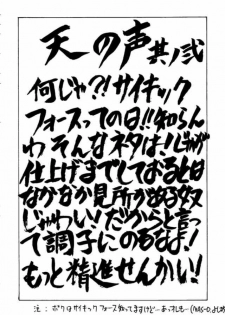 天の声 其ノ弐
何じゃ?!サイキック
フォースっての曰!!知らん
わそんなネタは!じゃが
仕上げまでしておるとは
なかなか見所がある奴
じゃわい!だからと言っ
て調子にのるなよ!
もっと精進せんかい!!
注:ボクはサイキックフォース知ってますけどー